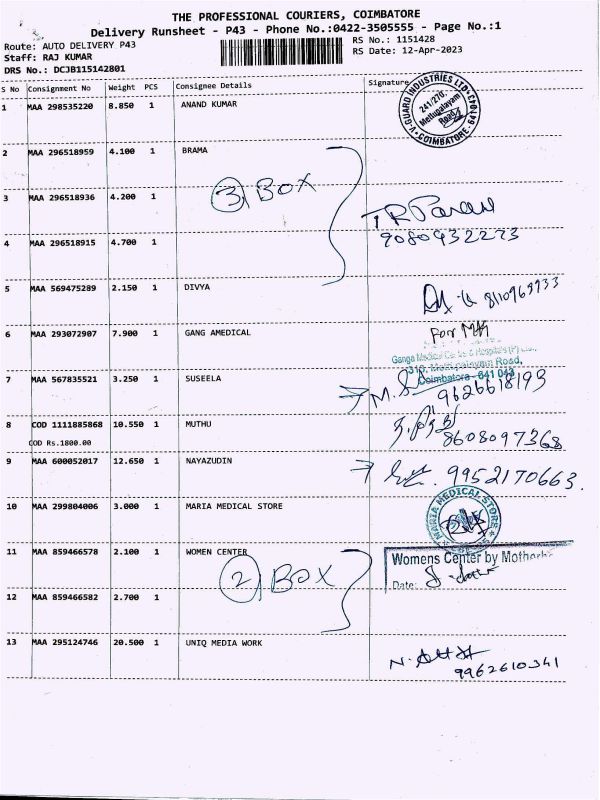 THE PROFESSIONAL COURIERS, COIMBATORE
Delivery Runsheet - P43 - Phone No.:0422-3505555 - Page No.:1
Route: AUTO DELIVERY P43 RS No.: 1151428
Staff: RAJ KUMAR RS Date: 12-Apr-2023
DRS No.: DCJB115142801
S No Consignment No Weight PCS Consignee Details Signature
1 MAA 298535220 8.850 1 ANAND KUMAR
V-GUARD INDUSTRIES LTD
241/270,
Mettupalayam
Road,
COIMBATORE-641043
2 MAA 296518959 4.100 1 BRAMA
3 BOX
3 MAA 296518936 4.200 1
4 MAA 296518915 4.700 1 9080932273
5 MAA 569475289 2.150 1 DIVYA 8110969933
6 MAA 293072907 7.900 1 GANG AMEDICAL For
Ganga Medical Centre & Hospitals (P) Ltd.,
Mettupalayam Road,
Coimbatore - 641 043
7 MAA 567835521 3.250 1 SUSEELA M. 9626618193
8 COD 1111885868 10.550 1 MUTHU 8608097368
COD Rs.1800.00
9 MAA 600052017 12.650 1 NAYAZUDIN 9952170663.
10 MAA 299804006 3.000 1 MARIA MEDICAL STORE
MARIA MEDICAL STORE
11 MAA 859466578 2.100 1 WOMEN CENTER
Womens Center by
Date:
2 BOX
12 MAA 859466582 2.700 1
13 MAA 295124746 20.500 1 UNIQ MEDIA WORK
9962610341